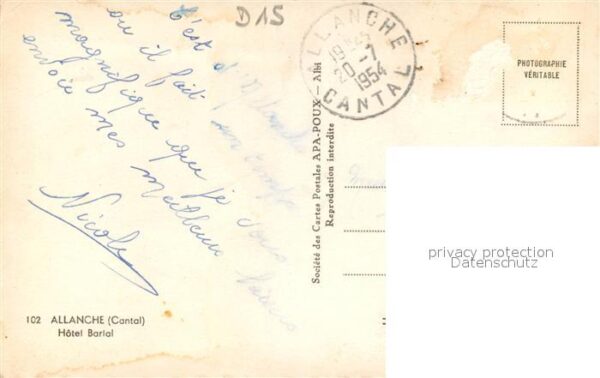 D15
ALLANCHE
19 H 25
20-7
1954
CANTAL
PHOTOGRAPHIE
VÉRITABLE
C'est d'Allanche
où il fait un temps
magnifique que je vous
envoie mes meilleurs baisers
Nicole
Société des Cartes Postales APA-POUX - Albi
Reproduction interdite
privacy protection
Datenschutz
102 ALLANCHE (Cantal)
Hôtel Barial